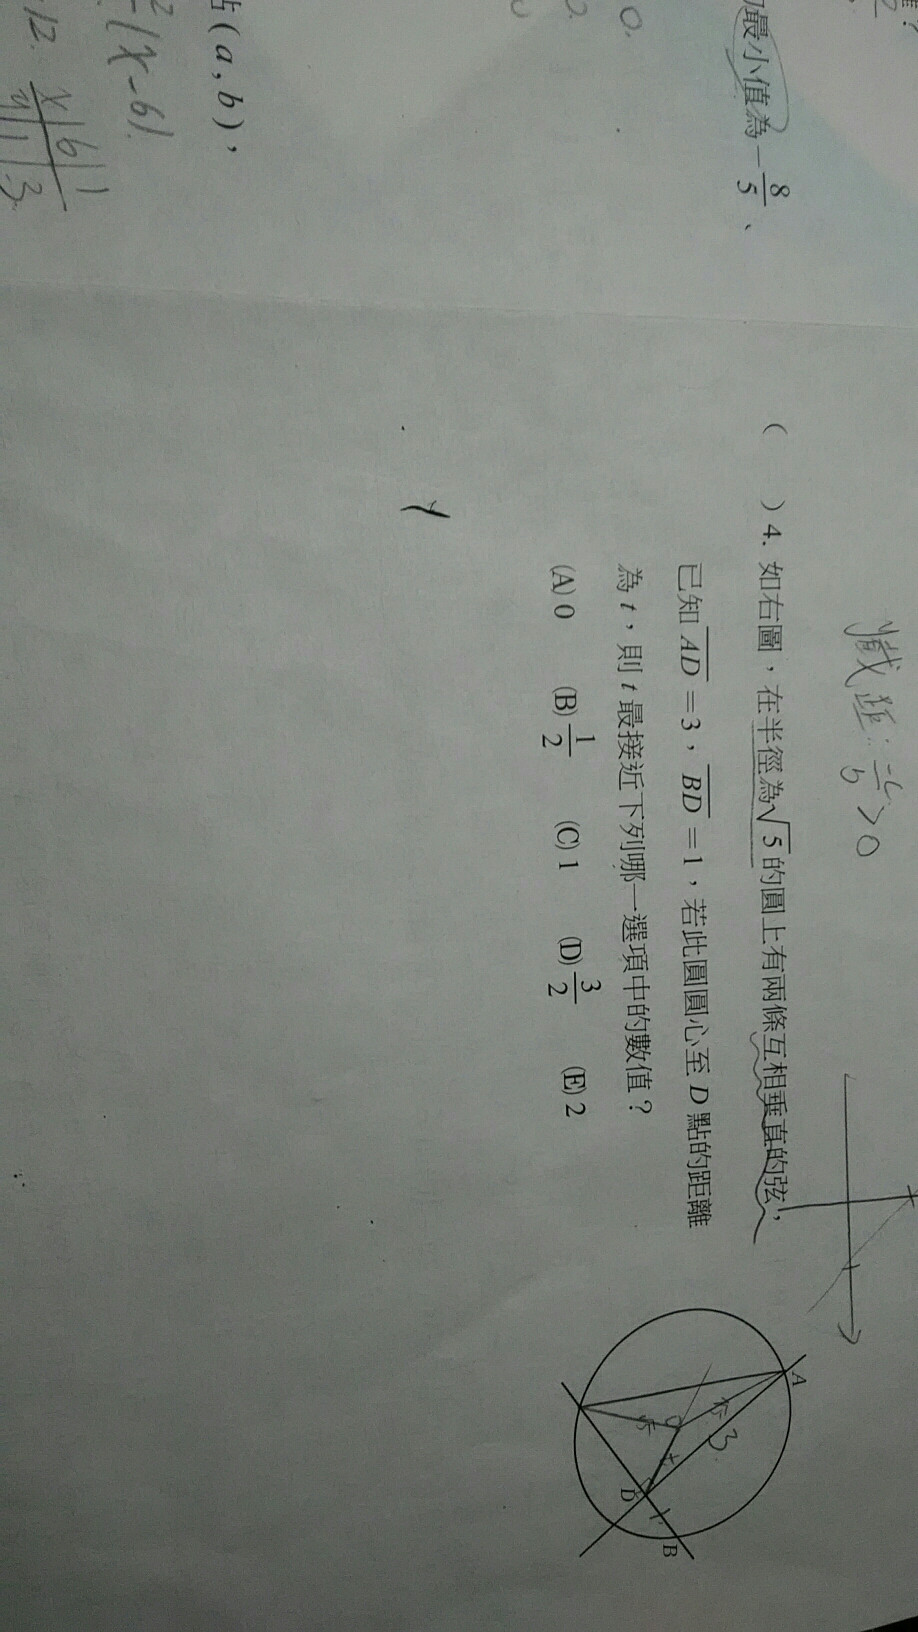 最小值為 -8/5、
0.
0.
點(a,b),
2
-(x-6).
12.
x | 6 | 1
y | 1 | 3
截距:-c/b>0
( )4. 如右圖,在半徑為√5的圓上有兩條互相垂直的弦,
已知 AD=3,BD=1,若此圓圓心至 D 點的距離
為 t,則 t 最接近下列哪一選項中的數值?
(A) 0 (B) 1/2 (C) 1 (D) 3/2 (E) 2
A
√5
3
O
√5
t
D
1
B